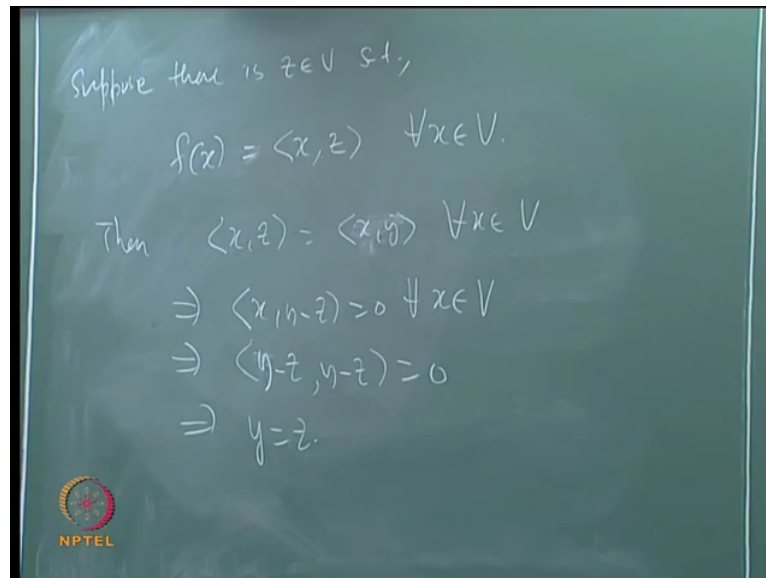 Suppose there is z∈V s.t.,
f(x) = <x, z> ∀x∈V.
Then <x, z> = <x, y> ∀x∈V
⇒ <x, y-z> = 0 ∀x∈V
⇒ <y-z, y-z> = 0
⇒ y = z.
NPTEL